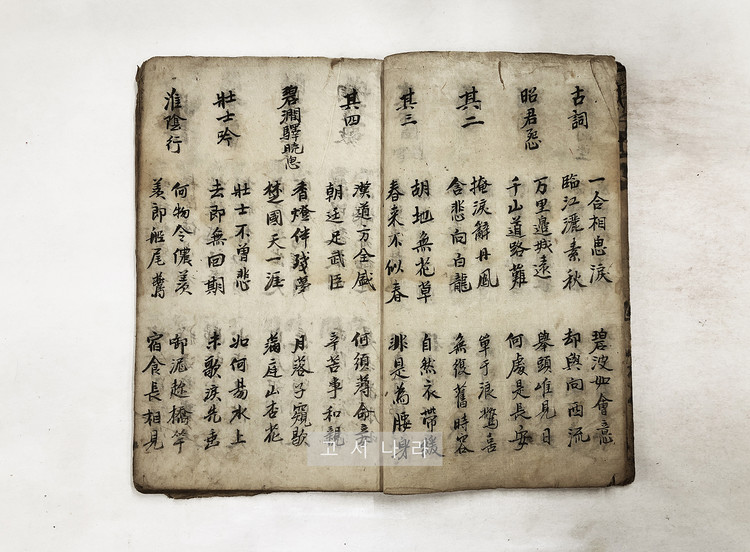 古詞
一合相思淚
臨江灑素秋
碧波如會意
却與向西流
昭君怨
万里邊城遠
千山道路難
舉頭唯見日
何處是長安
其二
掩淚辭丹鳳
含悲向白龍
單于浪驚喜
無復舊時容
其三
胡地無花草
春来不似春
自然衣帶緩
非是為腰身
其四
漢道方全盛
朝廷足武臣
何須薄命妾
辛苦事和親
碧澗驛曉思
香燈伴殘夢
楚國天一涯
月落子窺歇
滿庭山杏花
壯士吟
壯士不曾悲
去即無回期
如何昜水上
未歌淚先垂
淮陰行
何物令儂羨
羨郎船尾鷰
啣泥趁檣竿
宿食長相見
고서나라